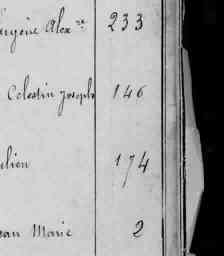 Eugène Alex.re 233
Celestin Joseph 146
ulien 174
ean Marie 2